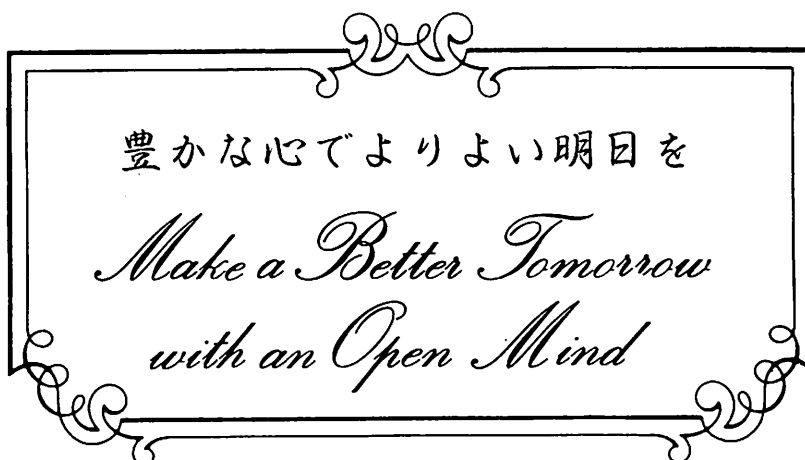 豊かな心でよりよい明日を
Make a Better Tomorrow
with an Open Mind